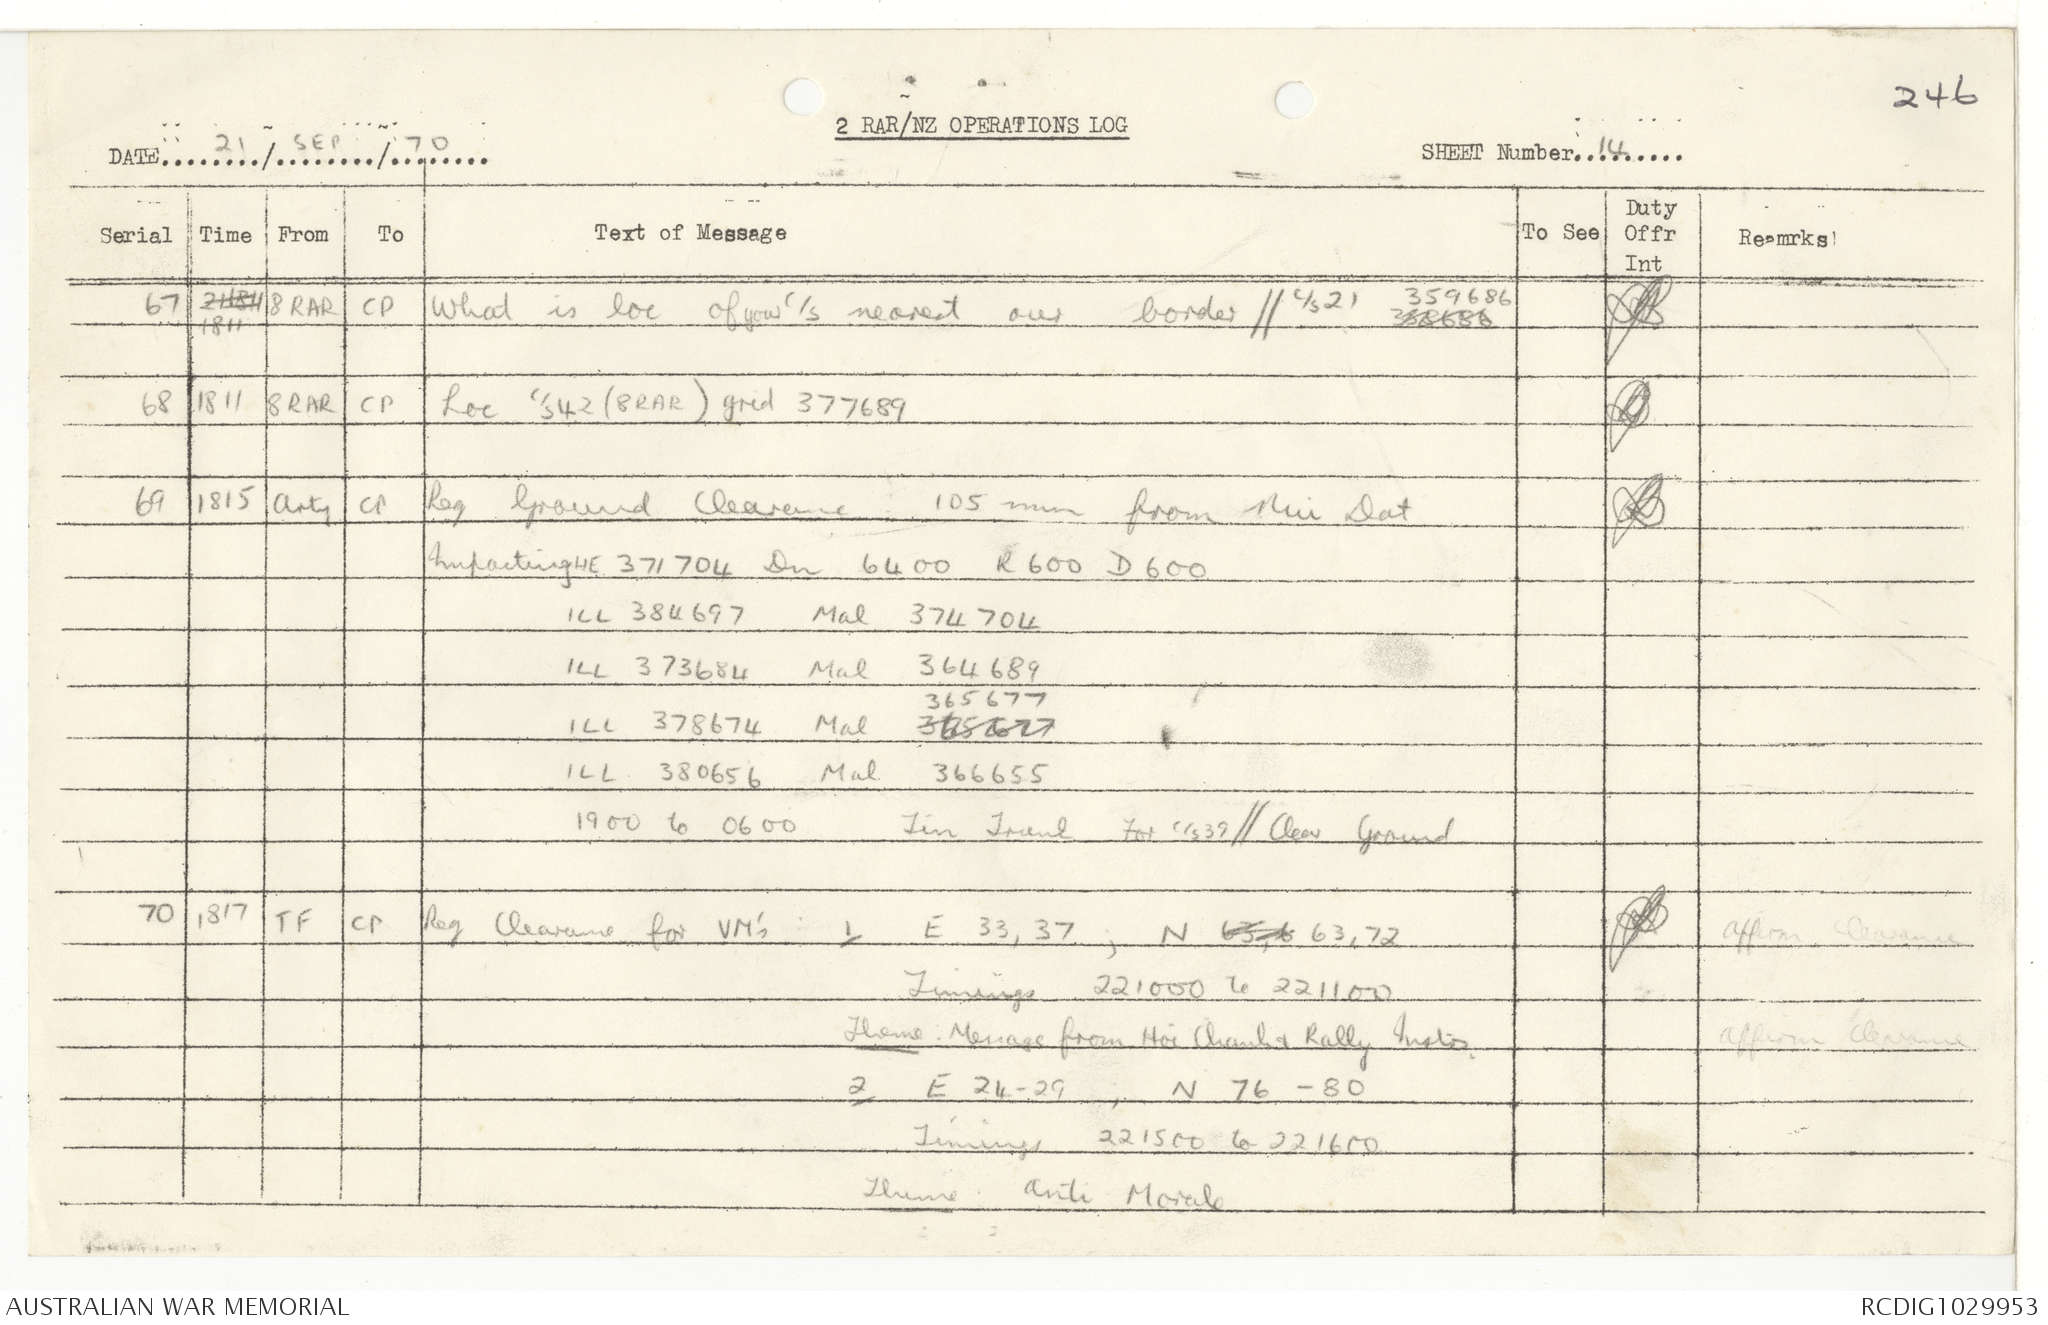 246
2 RAR/NZ OPERATIONS LOG
DATE 21 / SEP / 70
SHEET Number 14
Serial Time From To Text of Message To See Duty Offr Int Reamrks
67 1811 8 RAR CP What is loc of your c/s nearest our border // c/s 21 359686
68 1811 8 RAR CP Loc c/s 42 (8 RAR) grid 377689
69 1815 Arty CP Req Ground Clearance 105 mm from Nui Dat
Impacting HE 371704 Dn 6400 R 600 D 600
ILL 384697 Mal 374704
ILL 373684 Mal 364689
365677
ILL 378674 Mal
ILL 380656 Mal 366655
1900 to 0600 For c/s 39 // Clear Ground
70 1817 TF CP Req Clearance for VM's 1 E 33, 37 ; N 63, 72 Affirm Clearance
Timings 221000 to 221100
Theme: Message from Hoi Chanh & Rally Instns. Affirm Clearance
2 E 24-29 , N 76 - 80
Timings 221500 to 221600
Theme: Anti Morale
AUSTRALIAN WAR MEMORIAL
RCDIG1029953